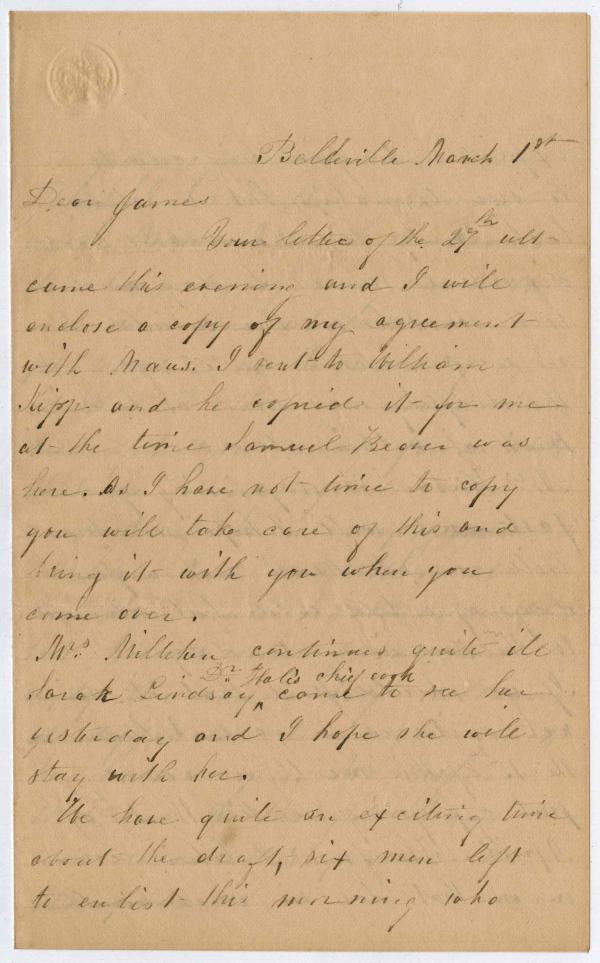 Belleville March 1st
Dear James
Your letter of the 27th ult
came this evening and I will
enclose a copy of my agreement
with Maus. I sent to William
Kipp and he copied it for me
at the time Samuel Beaver was
here. As I have not time to copy
you will take care of this and
bring it with you when you
come over.
Mrs. Milliken continues quite ill
Dr Hales chief cook
Sarah Lindsay ^ came to see her
yesterday and I hope she will
stay with her.
We have quite an exciting time
about the draft, six men left
to enlist this morning who